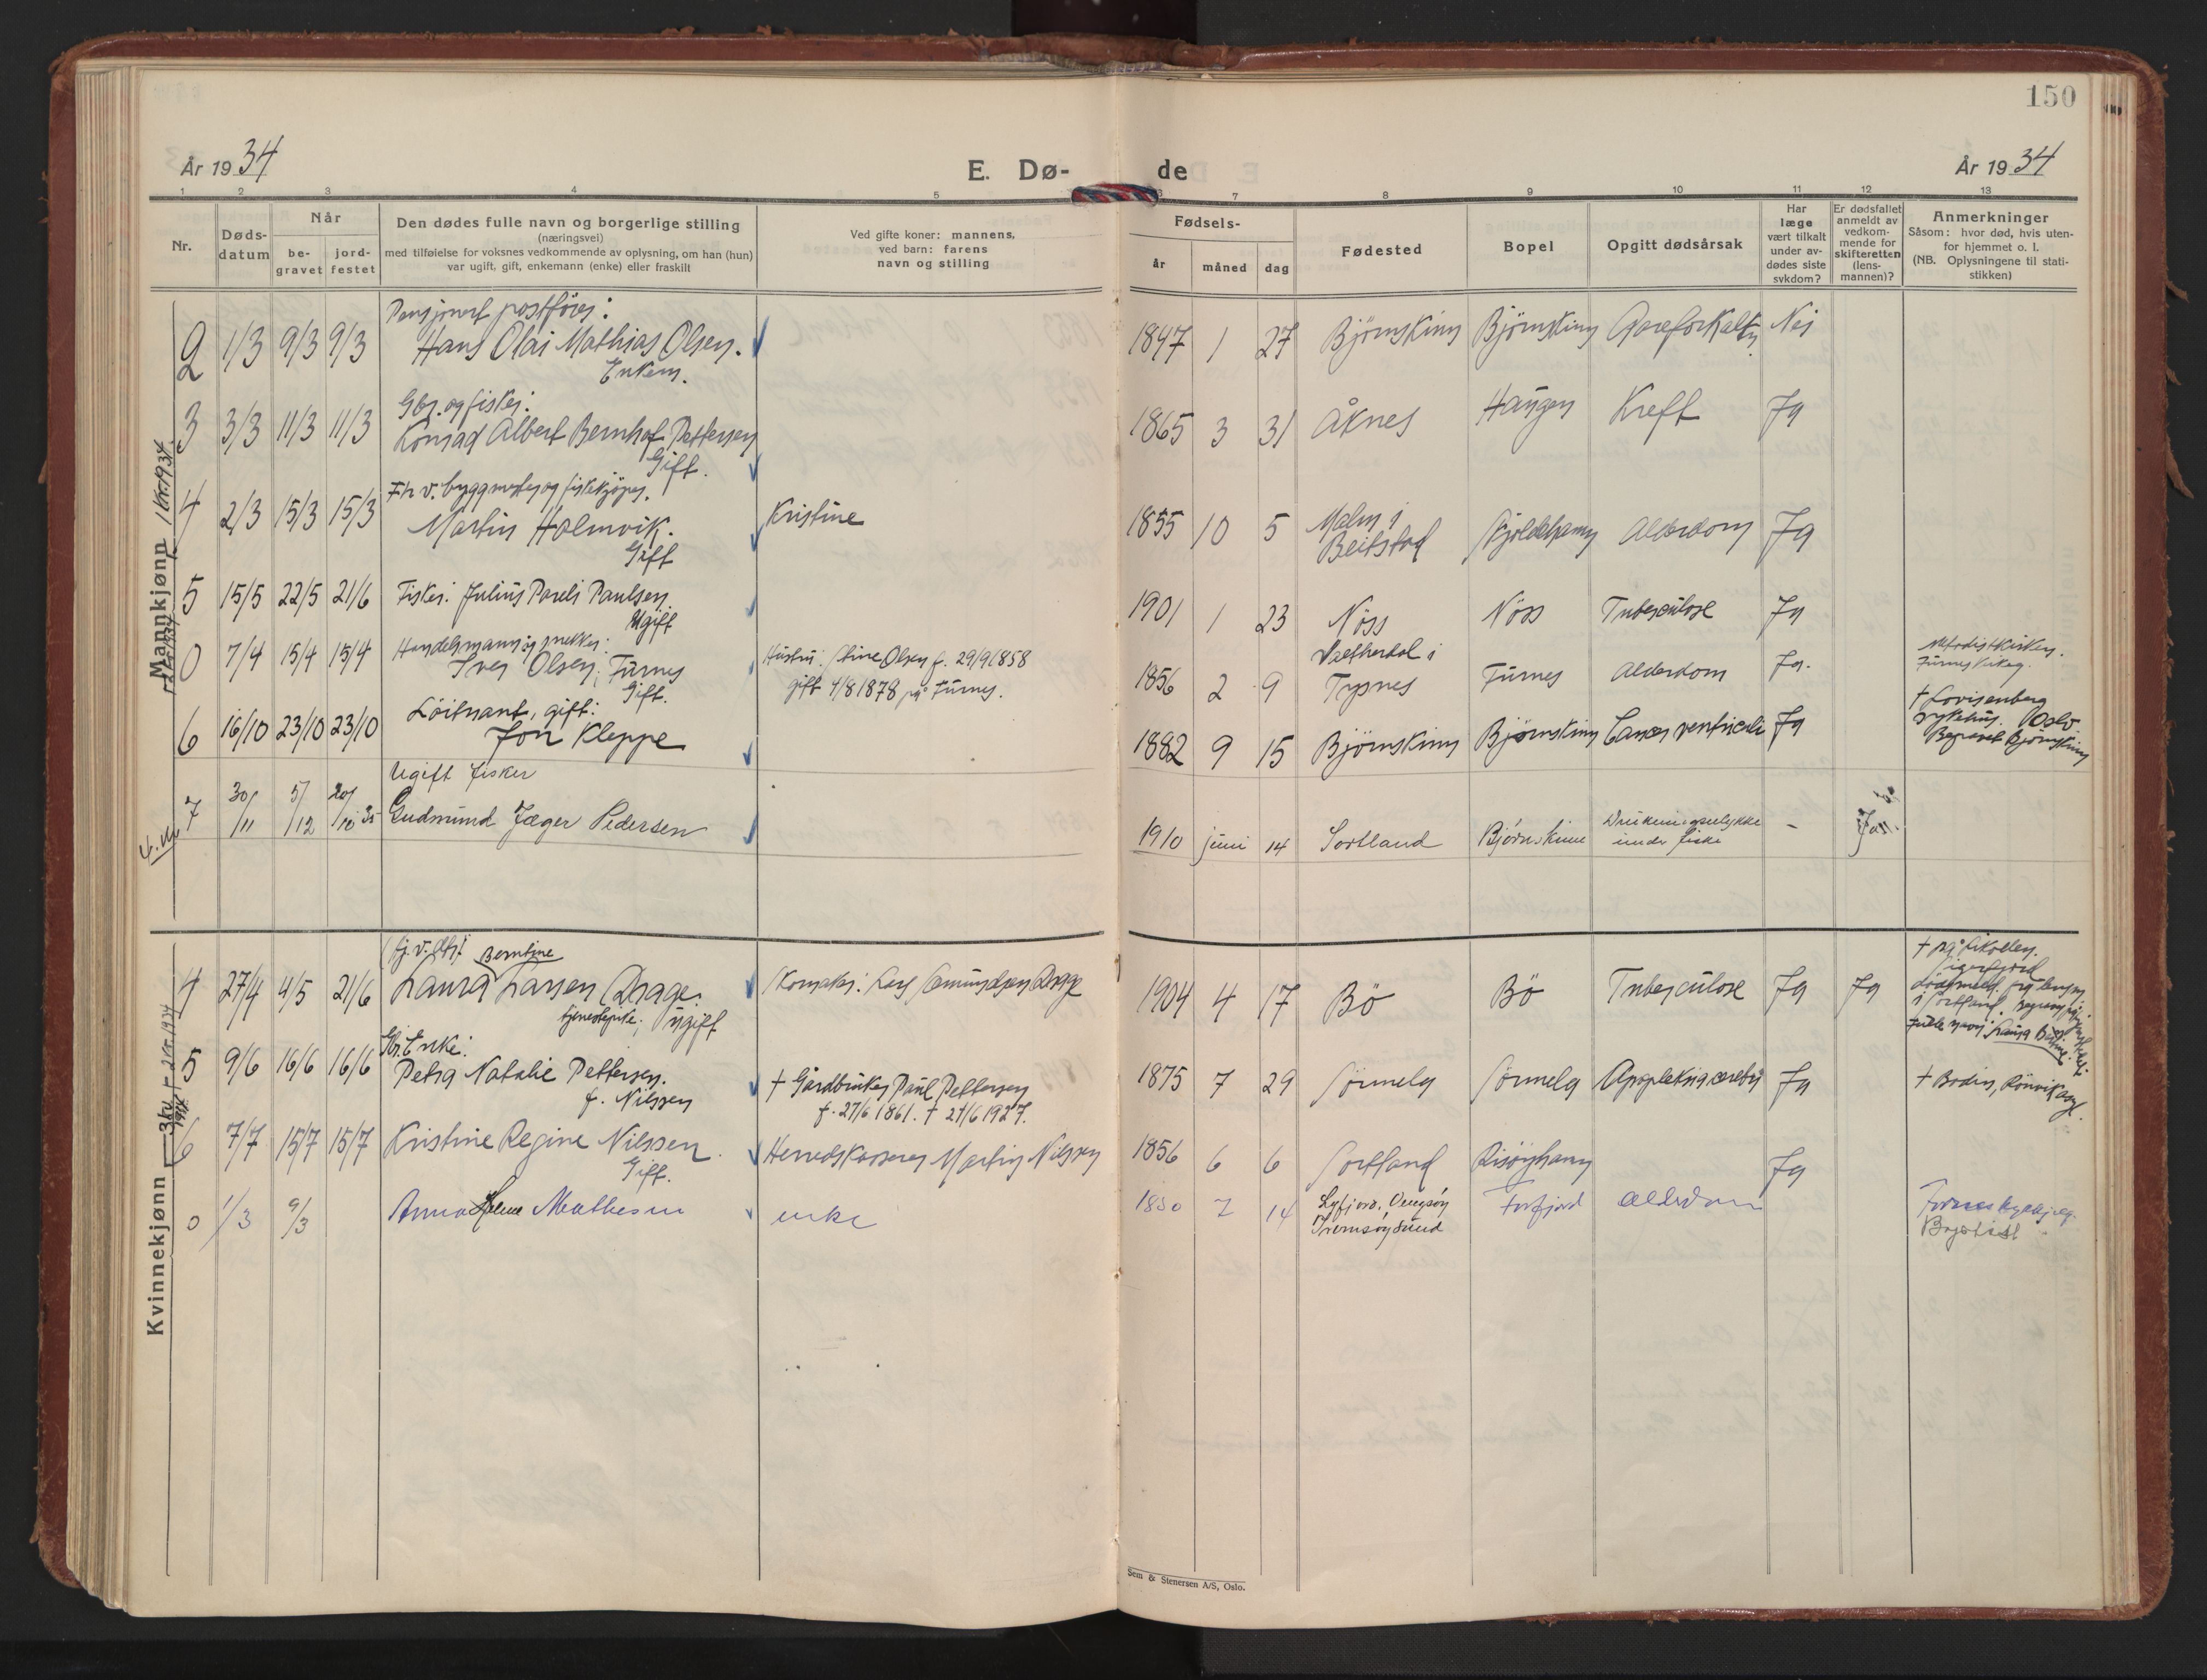 150
År 1934
E. Dø-
de
År 1934
1 2 3 4 5 6 7 8 9 10 11 12 13
Nr.
Døds-
datum
Når
be-
gravet
jord-
festet
Den dødes fulle navn og borgerlige stilling
(næringsvei)
med tilføielse for voksnes vedkommende av oplysning, om han (hun)
var ugift, gift, enkemann (enke) eller fraskilt
Ved gifte koner: mannens,
ved barn: farens
navn og stilling
Fødsels-
år måned dag
Fødested
Bopel
Opgitt dødsårsak
Har
læge
vært tilkalt
under av-
dødes siste
sykdom?
Er dødsfallet
anmeldt av
vedkom-
mende for
skifteretten
(lens-
mannen)?
Anmerkninger
Såsom: hvor død, hvis uten-
for hjemmet o. l.
(NB. Oplysningene til stati-
stikken)
Mannkjønn
1 kv. 1934
Pensjonert postfører:
2 1/3 9/3 9/3 Hans Olai Mathias Olsen. 1847 1 27 Björnskinn Björnskinn Nei
Enkem.
Gbr. og fisker:
3 3/3 11/3 11/3 Konrad Albert Bernhof Pettersen 1865 3 31 Åknes Haugen Kreft Ja
Gift.
Fh v. byggmester og fiskekjöper.
4 2/3 15/3 15/3 Martin Holmvik. Kristine 1855 10 5 Malm i
Beitstad Alderdom Ja
Gift
5 15/5 22/5 21/6 Fisker: Julius Pareli Paulsen. 1901 1 23 Nöss Nöss Tuberculose Ja
Ugift
Handelsmann og snekker:
0 7/4 15/4 15/4 Iver Olsen, Furnes Hustru: Stine Olsen f. 29/9 1858
Gift. gift 4/8 1878 på Furnes.
1856 2 9 Trysnes Furnes Alderdom Ja.
Metodistkirken.
Löitnant, gift:
6 16/10 23/10 23/10 Jon Kleppe 1882 9 15 Björnskinn Björnskinn Cancer ventriculi Ja
† Lovisenberg
sykehus. Oslo.
Begravet Björnskinn
Ugift fisker
7 30/11 5/12 20/10 35 Gudmund Jæger Pedersen 1910 juni 14 Sortland Bjørnskinn Drukningsulykke
under fiske - Ja.
4. kv.
Kvinnekjønn
Berntine
4 27/4 4/5 21/6 Laura Larsen (Drage: 1904 4 17 Bö Bö Tuberculose Ja Ja
tjenestepike. Ugift
Gbr. Enke:
5 9/6 16/6 16/6 Petra Natalie Pettersen. † Gårdbruker Paul Pettersen
f. Nilssen f. 27/6 1861. † 27/6 1927.
1875 7 29 Sörmela Sörmela Ja † Bodin, Rönvik asyl.
6 7/7 15/7 15/7 Kristine Regine Nilssen. Herredskasserer Martin Nilssen 1856 6 6 Sortland Risöyhamn Ja
Gift.
0 1/3 9/3 Anna Helene Mathesen enke 1850 2 14
Tromsöysund
Forfjord Alderdom
Baptist
Sem & Stenersen A/S, Oslo.